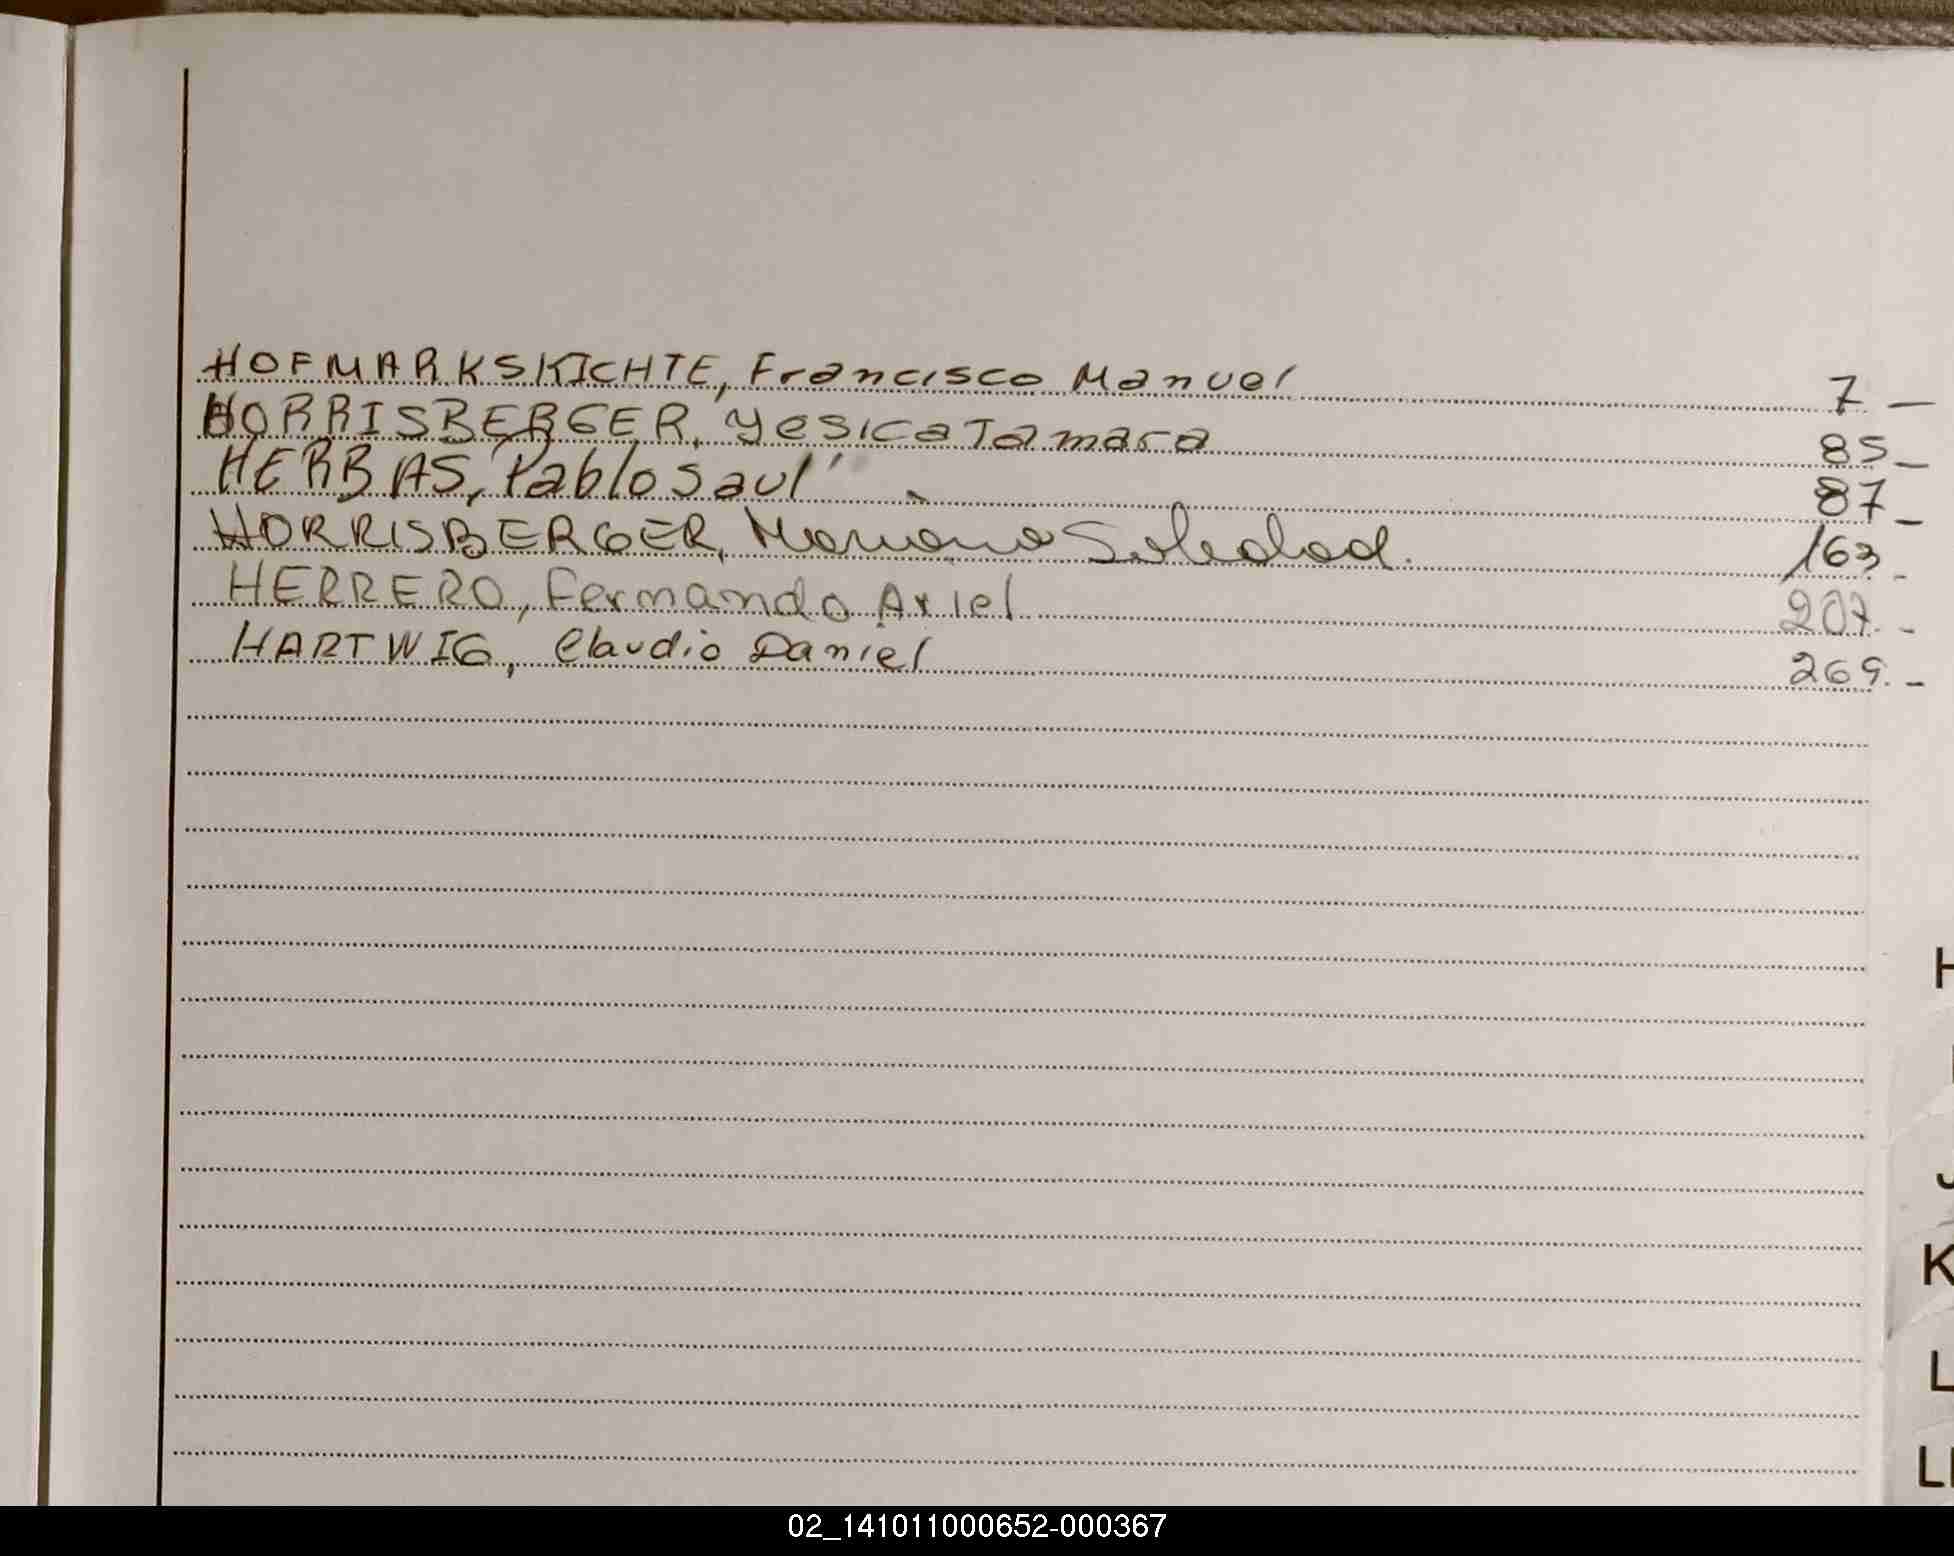 HOFMARKSKICHTE, Francisco Manuel 7 —
HORRISBERGER, Yesica Tamara 85 -
HERBAS, Pablo Saul 87 -
HORRISBERGER, Mariana Soledad. 163 -
HERRERO, Fernando Ariel 207. -
HARTWIG, Claudio Daniel 269. -
H
J
K
L
LL
02_141011000652-000367